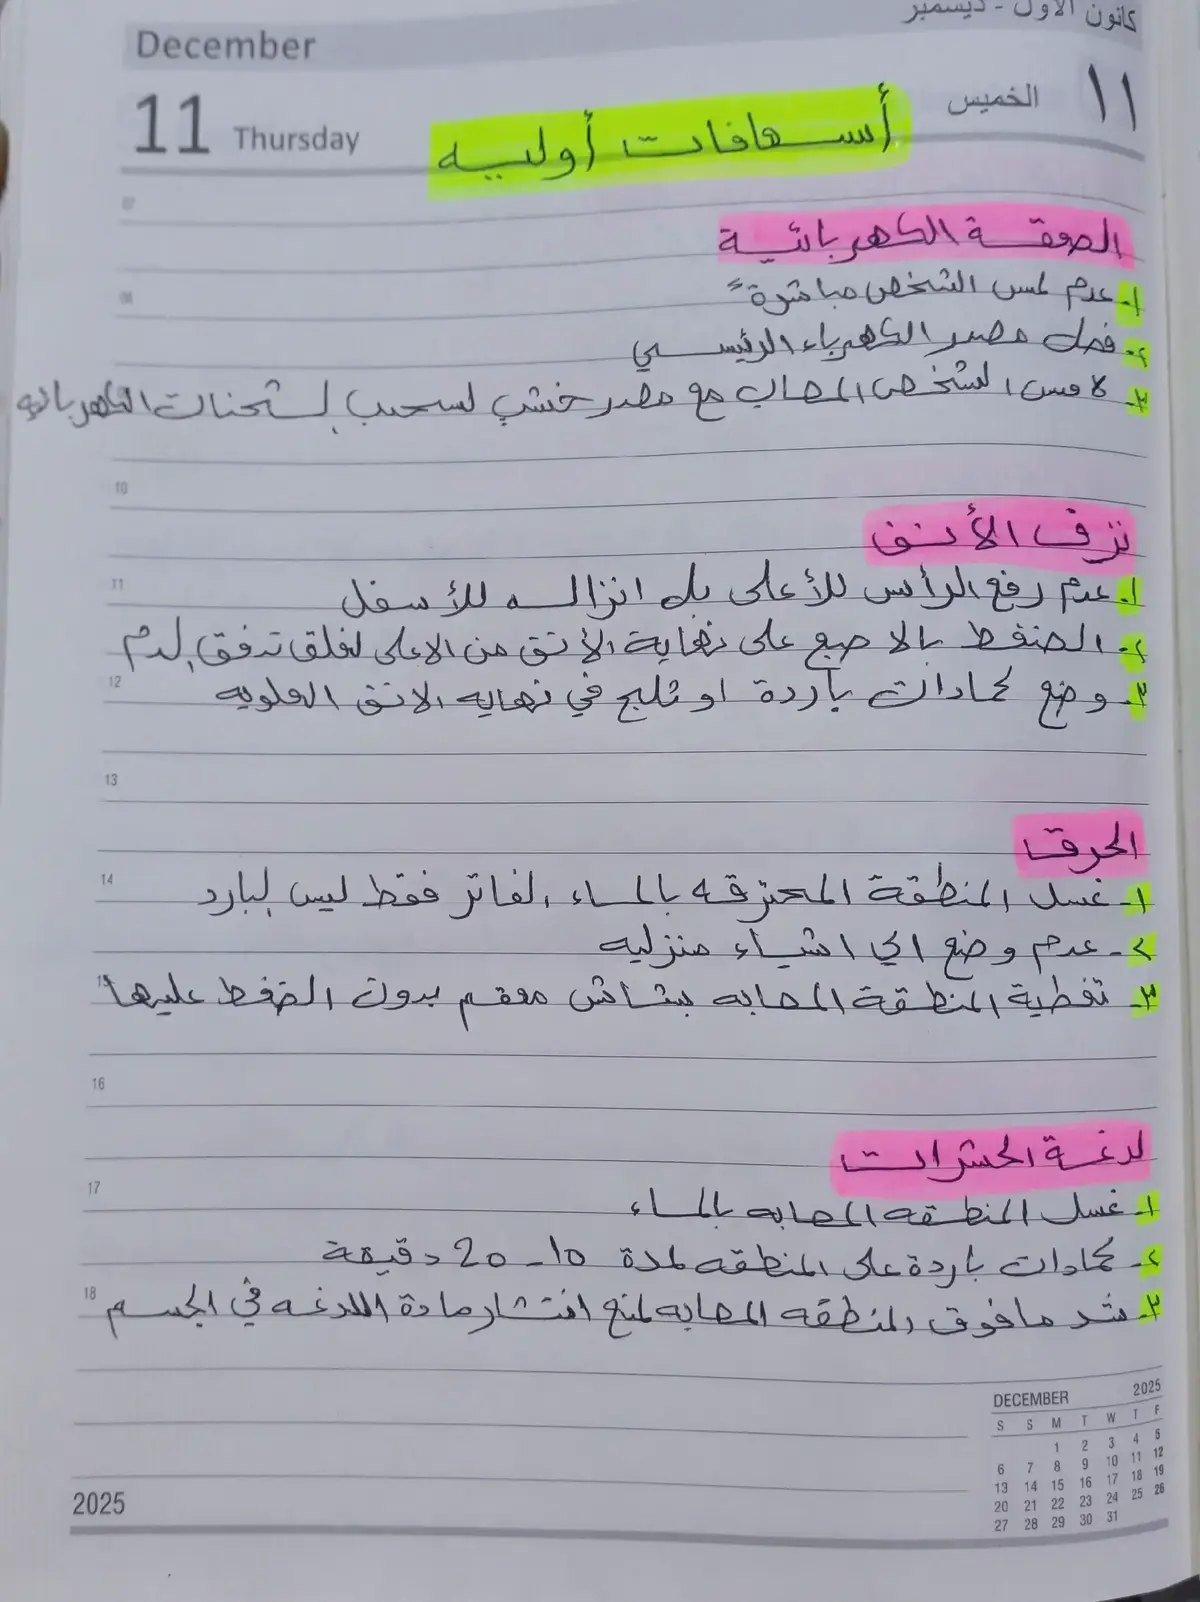 كانون الأول - ديسمبر
December
11 Thursday
الخميس ١١
أسعافات أوليه
الصعقة الكهربائية
١- عدم لمس الشخص مباشرةً
٢- فصل مصدر الكهرباء الرئيسي
٣- لامس الشخص المصاب مع مصدر خشبي لسحب الشحنات الكهربائيه
نزف الأنف
١- عدم رفع الرأس للأعلى بل انزاله للأسفل
٢- الضغط بالاصبع على نهاية الأنف من الاعلى لغلق تدفق الدم
٣- وضع كمادات باردة او ثلج في نهايه الانف العلويه
الحرق
١- غسل المنطقة المحترقه بالماء الفاتر فقط ليس البارد
٢- عدم وضع اي اشياء منزليه
٣- تغطية المنطقة المصابه بشاش معقم بدون الضغط عليها
لدغة الحشرات
١- غسل المنطقه المصابه بالماء
٢- كمادات باردة على المنطقه لمدة 10 - 20 دقيقة
٣- شد مافوق المنطقه المصابه لمنع انتشار مادة اللدغه في الجسم
07
08
10
11
12
13
14
15
16
17
18
DECEMBER 2025
S S M T W T F
1 2 3 4 5
6 7 8 9 10 11 12
13 14 15 16 17 18 19
20 21 22 23 24 25 26
27 28 29 30 31
2025